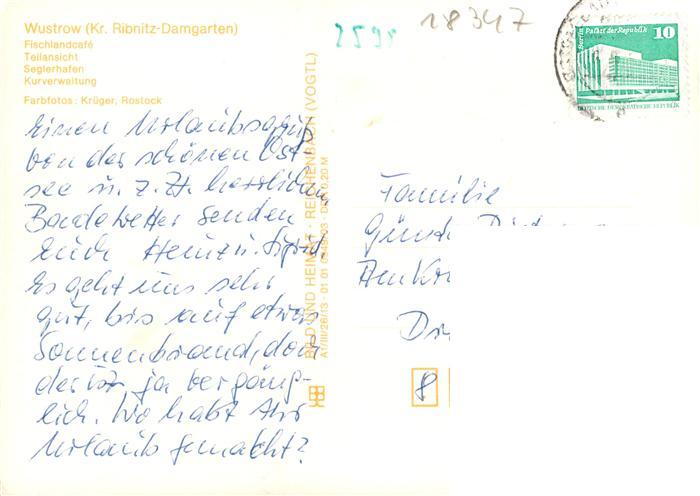 Wustrow (Kr. Ribnitz-Damgarten)
Fischlandcafé
Teilansicht
Seglerhafen
Kurverwaltung
Farbfotos: Krüger, Rostock
2598
18347
Berlin, Palast der Republik
10
DEUTSCHE DEMOKRATISCHE REPUBLIK
Einen Urlaubsgruß
von der schönen Ost-
see u. z. Zt. herrlichem
Badewetter senden
Euch Heinz u. Sigrid.
Es geht uns sehr
gut, bis auf etwas
Sonnenbrand, doch
das ist ja vergäng-
lich. Wo habt Ihr
Urlaub gemacht?
BILD UND HEIMAT · REICHENBACH (VOGTL)
A1/III/26/13 - 01 01 0,20 M
Familie
8